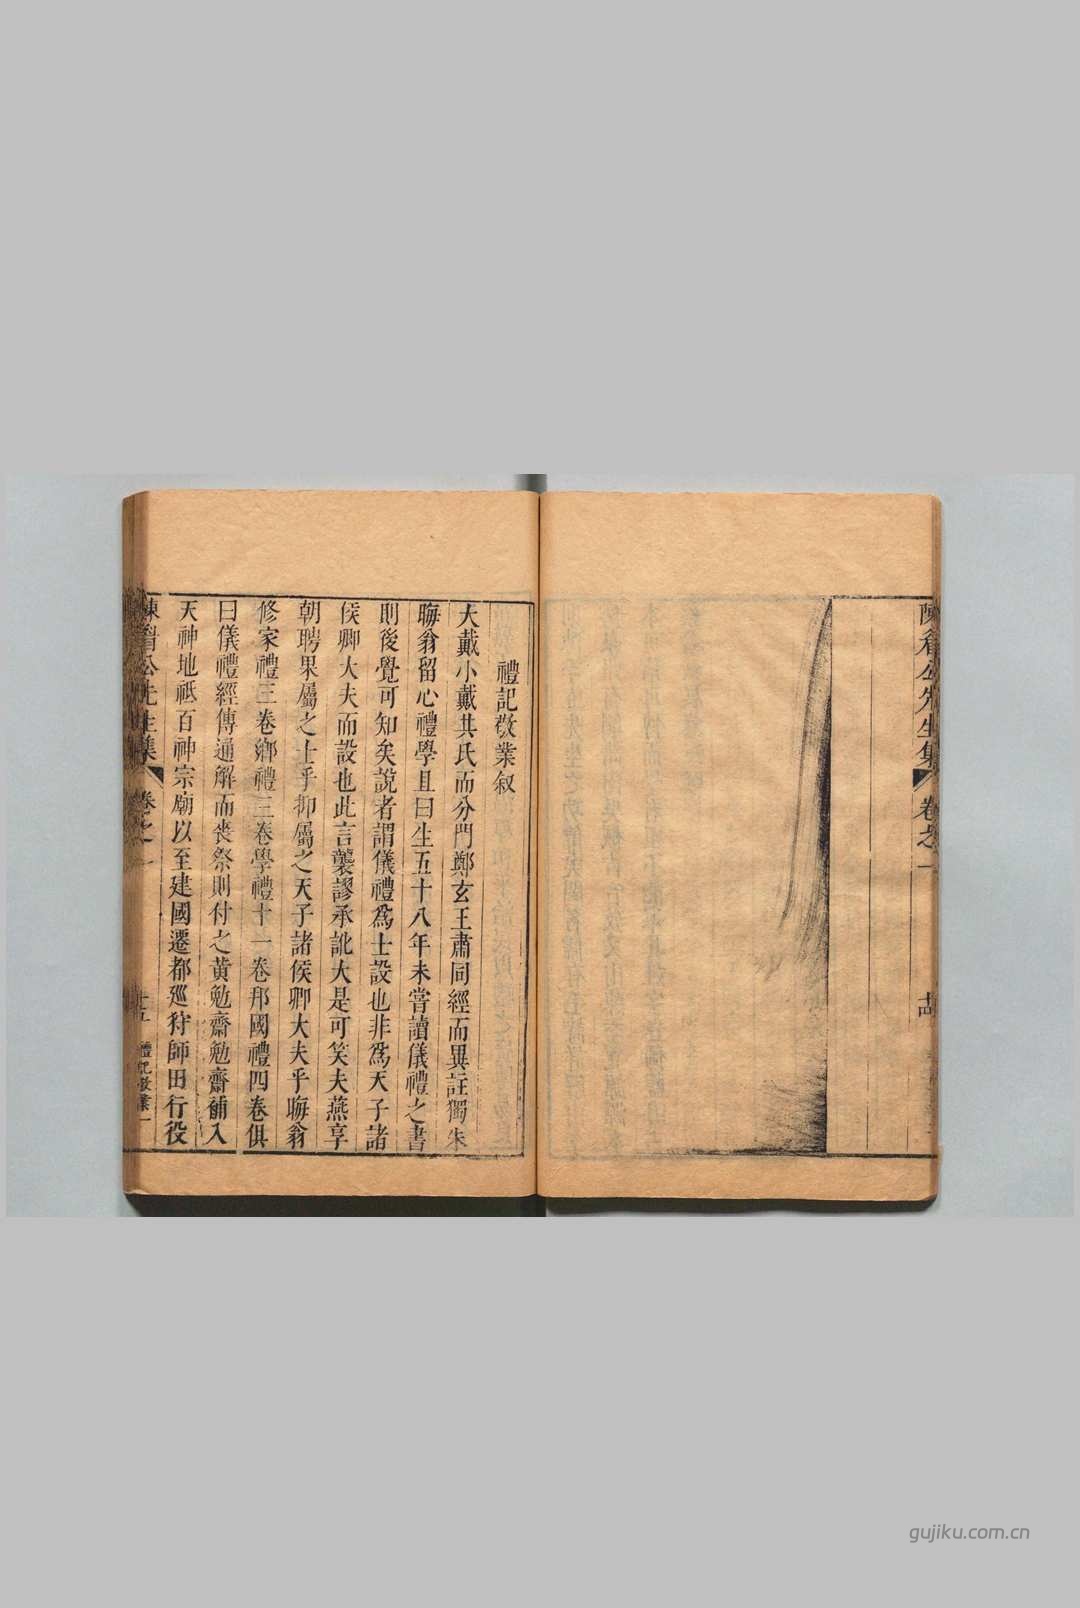 陳眉公先生集
卷之一
禮記敬業叙
大戴小戴共氏而分門鄭玄王肅同經而異註獨朱
晦翁留心禮學且曰生五十八年未嘗讀儀禮之書
則後覺可知矣說者謂儀禮爲士設也非爲天子諸
侯卿大夫而設也此言襲謬承訛大是可笑夫燕享
朝聘果屬之士乎抑屬之天子諸侯卿大夫乎晦翁
修家禮三卷鄉禮三卷學禮十一卷邦國禮四卷俱
曰儀禮經傳通解而喪祭則付之黃勉齋勉齋補入
天神地祗百神宗廟以至建國遷都廵狩師田行役
陳眉公先生集
卷之一
禮記敬業一
gujiku.com.cn